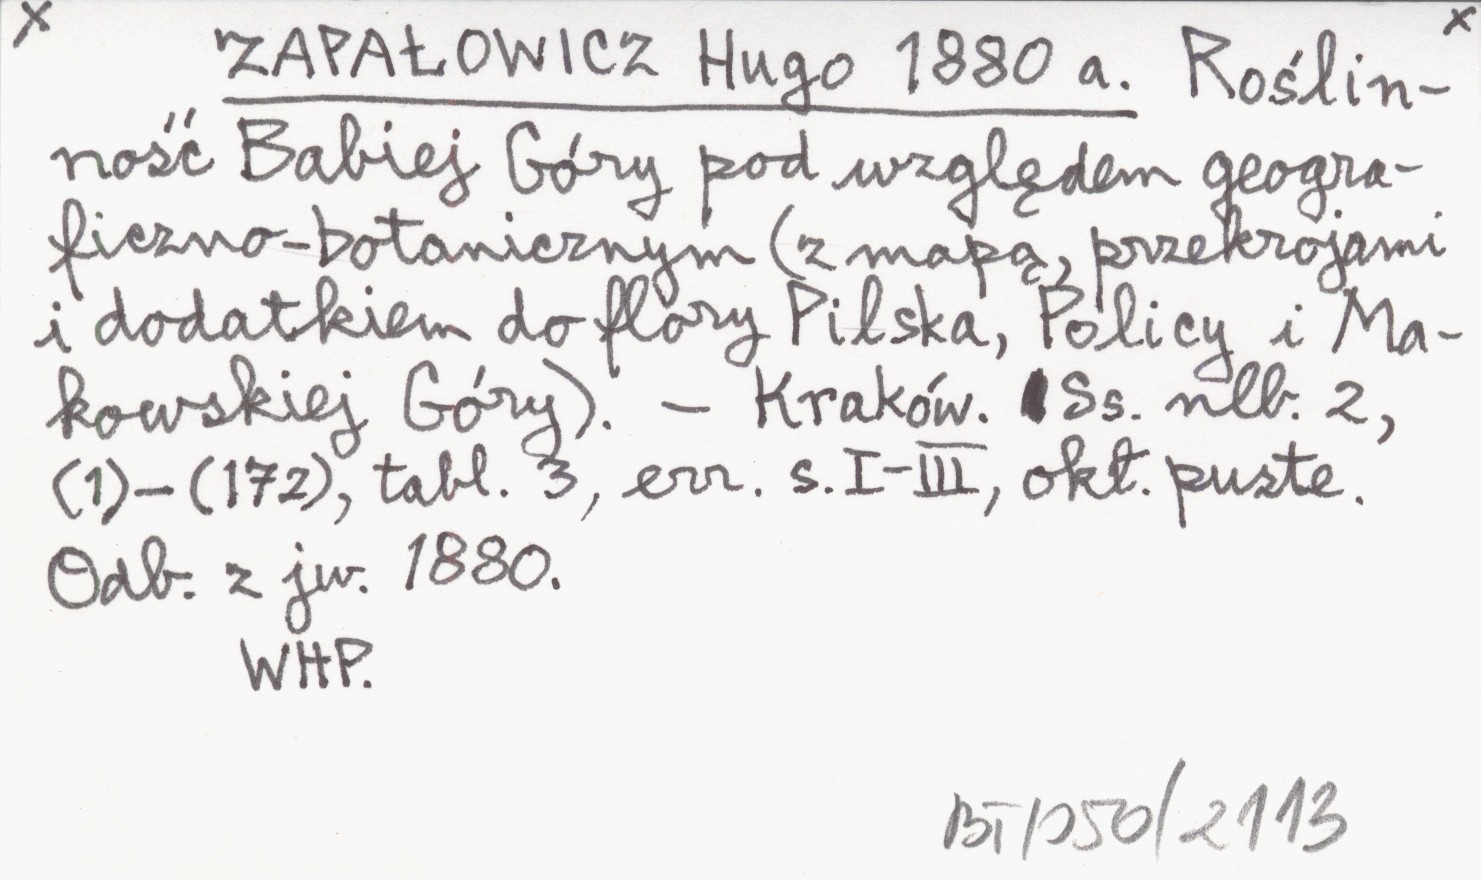 x x
ZAPAŁOWICZ Hugo 1880 a. Roślin-
ność Babiej Góry pod względem geogra-
ficzno-botanicznym (z mapą, przekrojami
i dodatkiem do flory Pilska, Policy i Ma-
kowskiej Góry). – Kraków. Ss. nlb. 2,
(1)–(172), tabl. 3, err. s. I–III, okł. puste.
Odb. z jw. 1880.
WHP.
BT/D50/2113